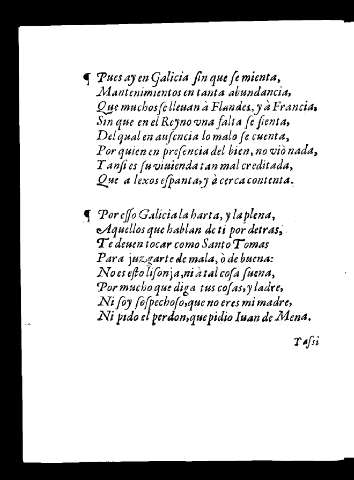 ¶ Pues ay en Galicia sin que se mienta,
Mantenimientos en tanta abundancia,
Que muchos se lleuan à Flandes, y à Francia,
Sin que en el Reyno vna falta se sienta,
Del qual en ausencia lo malo se cuenta,
Por quien en presencia del bien, no viò nada,
Y ansi es su viuienda tan mal creditada,
Que a lexos espanta, y à cerca contenta.
¶ Por esso Galicia la harta, y la plena,
Aquellos que hablan de ti por detras,
Te deuen tocar como Santo Tomas
Para juzgarte de mala, ò de buena:
No es esto lisonja, ni à tal cosa suena,
Por mucho que diga tus cosas, y ladre,
Ni soy sospechoso, que no eres mi madre,
Ni pido el perdon, que pidio Iuan de Mena.
Tassi